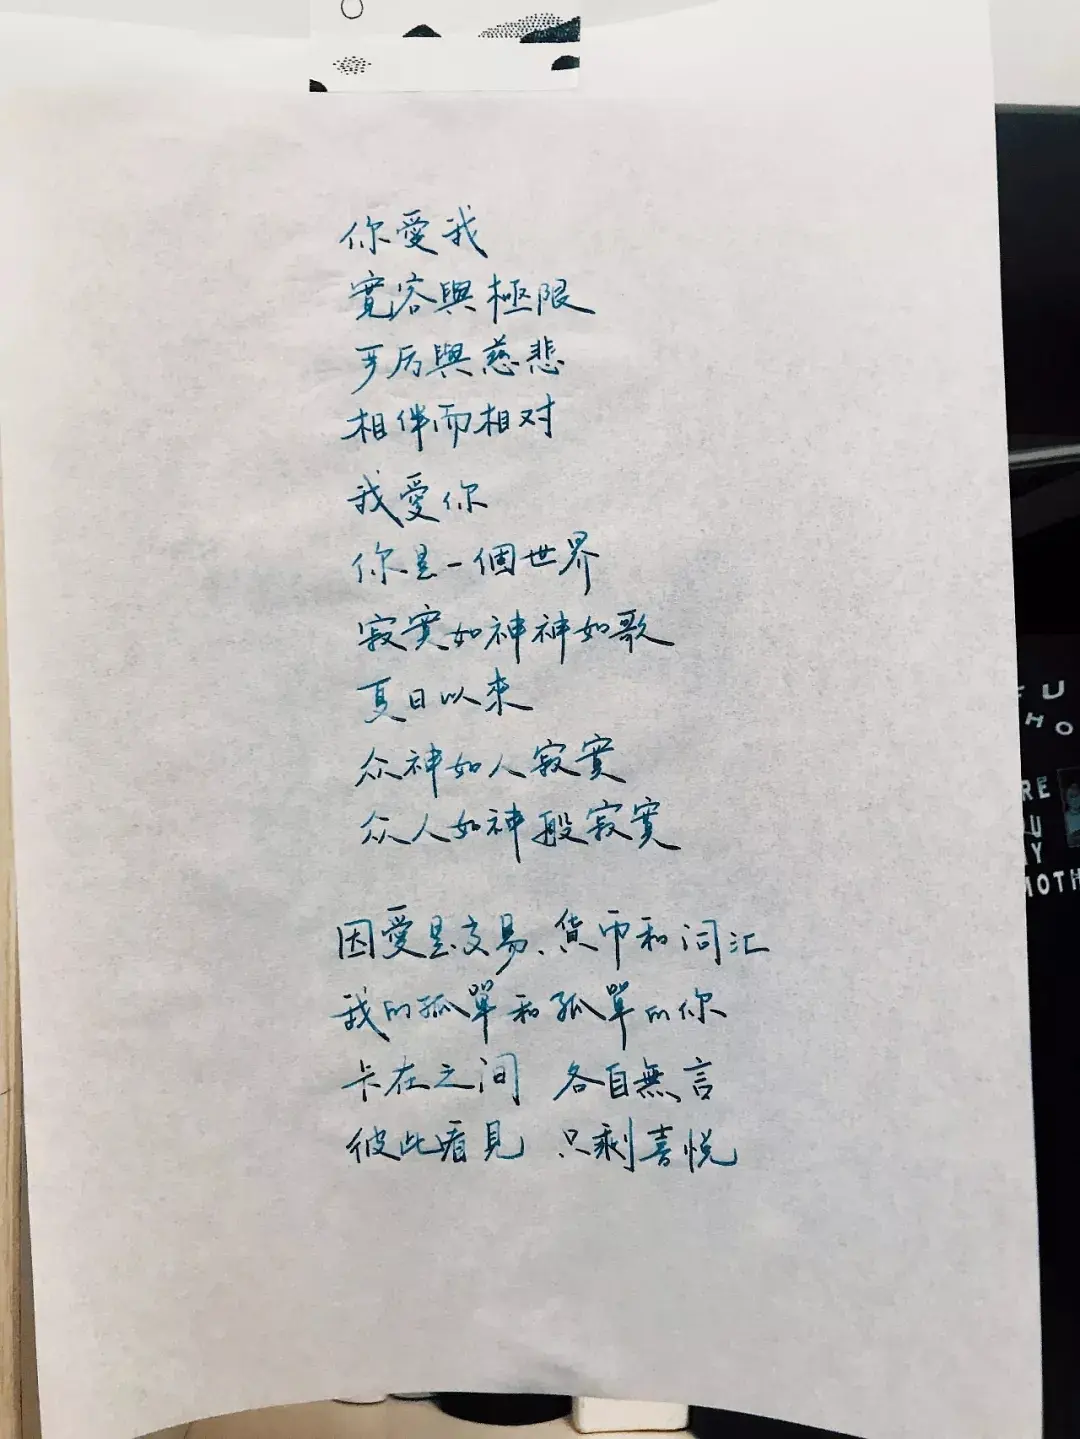 你愛我
寬容與極限
歹厉與慈悲
相伴而相对
我愛你
你是一個世界
寂寞如神神如歌
夏日以來
众神如人寂寞
众人如神般寂寞
因愛是交易、貨币和词汇
我的孤單和孤單的你
卡在之间 各自無言
彼此看見 只剩喜悦
FU
HO
RE
U
MY
MOTH